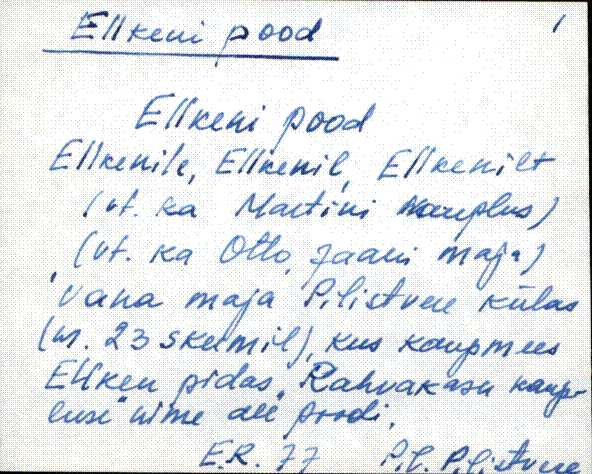 Ellkeni pood 1
Ellkeni pood
Ellkenile, Ellkenil, Ellkenilt
(vt. ka Martini kauplus)
(vt. ka Otto, Jaani maja)
Vana maja Pilistvere külas
(nr. 23 skeemil), kus kaupmees
Ellken pidas „Rahvakasu kaup-
luse" nime all poodi.
E.R. 77 Pil. Pilistvere